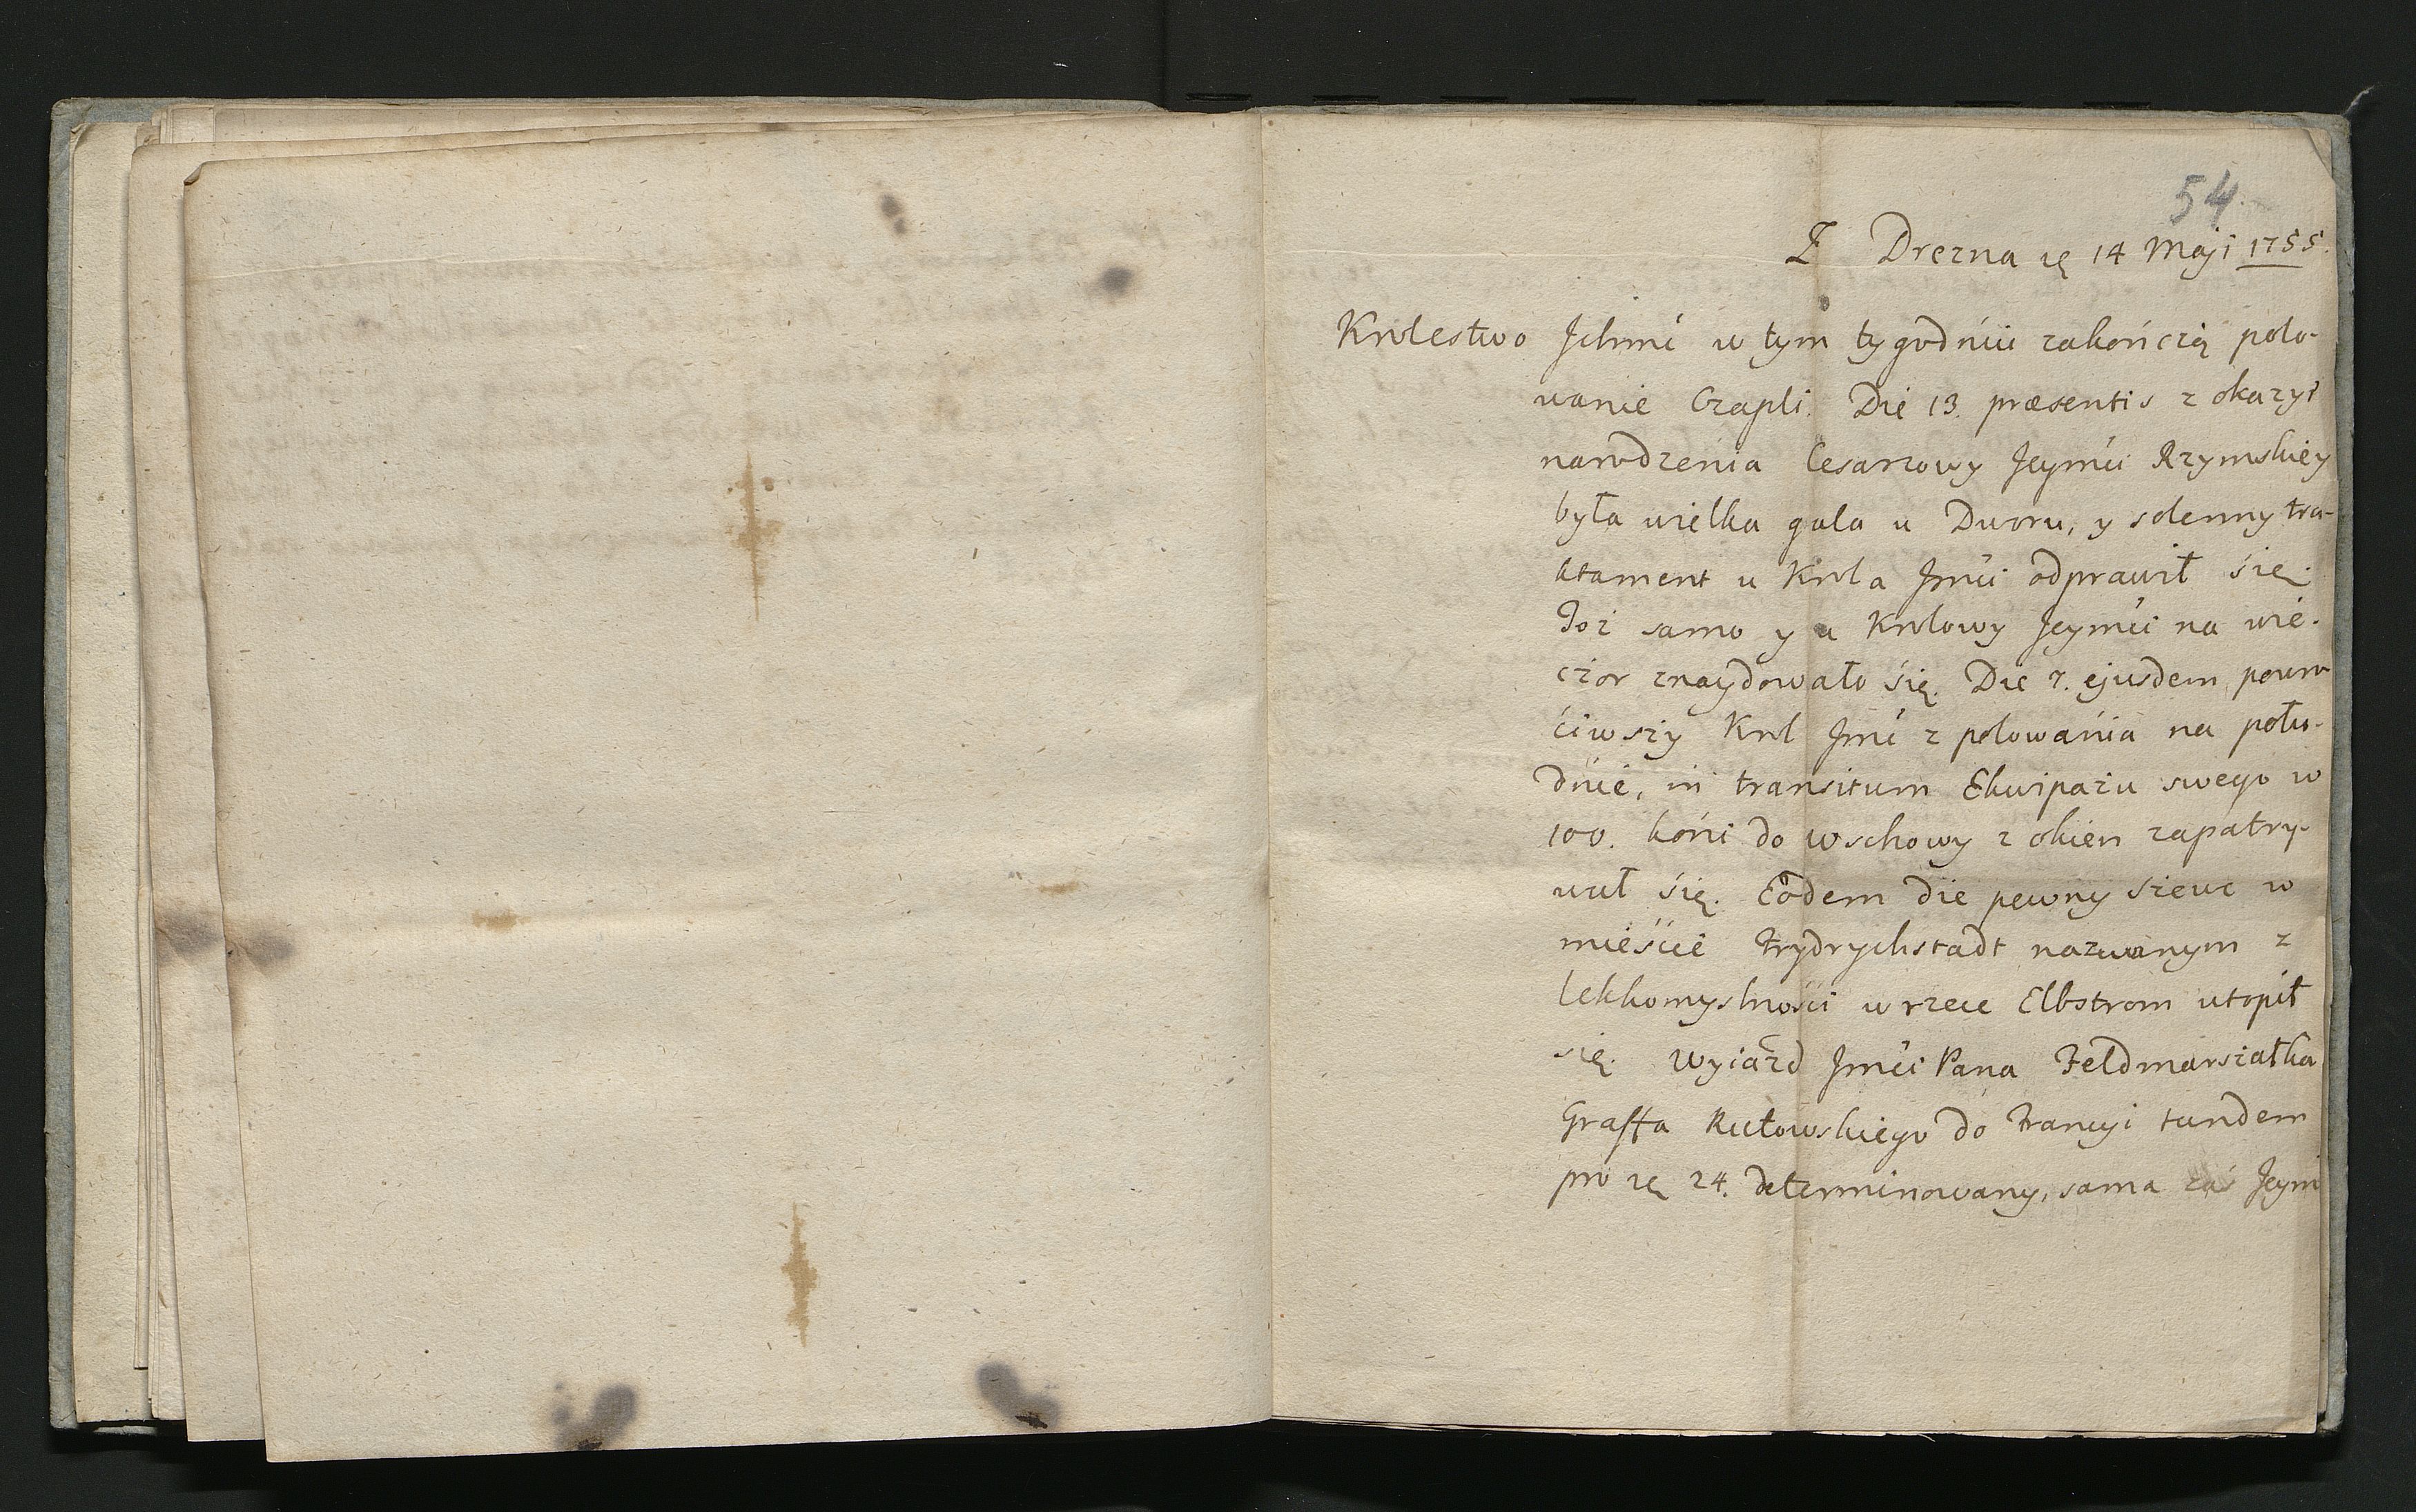 54.
Z Drezna ię 14 Maji 1755.
Krolestwo Jchmć w tym tygodńiu zakończą polo-
wanie Czapli. Die 13. præsentis z okazyi
narodzenia Cesarzowy Jeymći Rzymskiey
była wielka gala u Dworu, y solenny tra-
ktament u Krola Jmći odprawił śię.
Toż samo y u Krolowy Jeymći na wie-
czor znaydowało śię. Die 7. ejusdem powro
ćiwszy Krol Jmć z polowańia na połu-
dńie, in transitum Ekwipażu swego w
100. końi do Wschowy z okien zapatry-
wał śię. Eodem die pewny Szewc w
mieśćie Frydrychstadt nazwanym z
lekkomyslnośći w rzece Elbstrom utopił
się. Wyiazd Jmći Pana Feldmarszałka
Graffa Rutowskiego do Francyi tandem
pro ię 24. determinowany, sama zaś Jeym